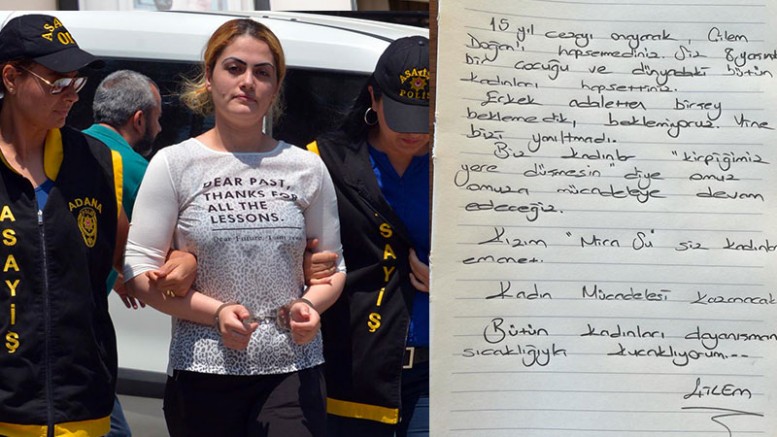 ASAYİŞ
ADANA
ASAYİŞ
POLİS
ASAYİŞ
DEAR PAST,
THANKS FOR
ALL THE
LESSONS.
Dear Future,
15 yıl cezayı onayarak, Çilem
Doğan'ı hapsemediniz. Siz 8 yaşınd
bir çocuğu ve dünyadaki bütün
kadınları hapsettiniz.
Erkek adaletten birşey
beklemedik, beklemiyoruz. Yine
bizi yanıltmadı.
Biz kadınlar "kirpiğimiz
yere düşmesin" diye omuz
omuza mücadeleye devam
edeceğiz.
Kızım "Mira Su" siz kadınla
emanet.
Kadın Mücadelesi kazanacak
Bütün kadınları dayanışman
sıcaklığıyla kucaklıyorum...
ÇİLEM